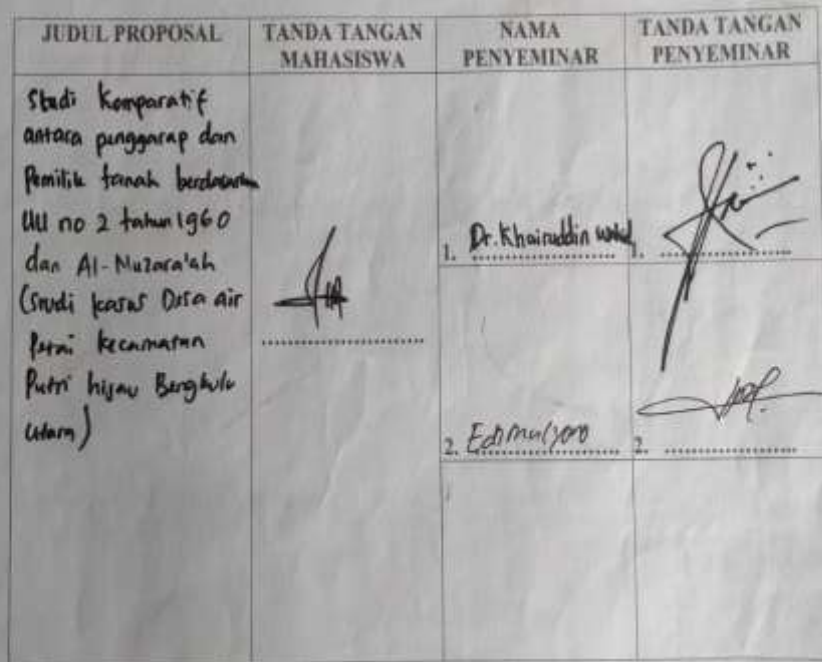 JUDUL PROPOSAL
TANDA TANGAN MAHASISWA
NAMA PENYEMINAR
TANDA TANGAN PENYEMINAR
Studi Komparatif
antara penggarap dan
Pemilik tanah berdasarkan
UU no 2 tahun 1960
dan Al-Muzara'ah
(Studi kasus Desa air
Petai kecamatan
Putri hijau Bengkulu
Utara)
1. Dr. Khairuddin
1.
2. Edi Mulyono
2.